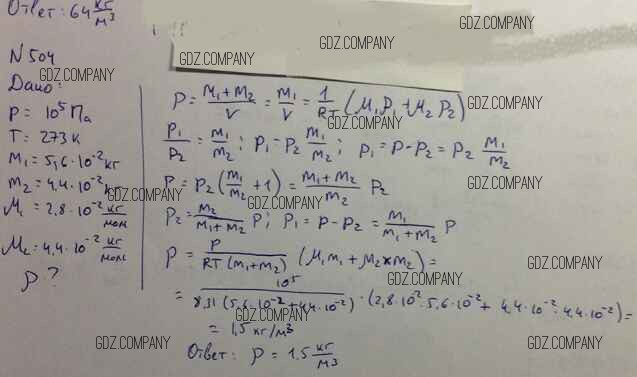 Ответ: 64 кг/м³
N 504
Дано:
P = 10⁵ Па
T = 273 К
m₁ = 5,6·10⁻² кг
m₂ = 4,4·10⁻² кг
M₁ = 2,8·10⁻² кг/моль
M₂ = 4,4·10⁻² кг/моль
ρ ?
ρ = (m₁+m₂)/V = m₁/V = 1/RT (M₁P₁ + M₂P₂)
P₁/P₂ = m₁/m₂; P₁ = P₂ m₁/m₂; P₁ = P - P₂ = P₂ m₁/m₂
P = P₂ (m₁/m₂ + 1) = (m₁+m₂)/m₂ P₂
P₂ = m₂/(m₁+m₂) P; P₁ = P - P₂ = m₁/(m₁+m₂) P
ρ = P/(RT(m₁+m₂)) (M₁m₁ + M₂×m₂) =
= 10⁵/(8,31(5,6·10⁻²+4,4·10⁻²)) · (2,8·10⁻²·5,6·10⁻² + 4,4·10⁻²·4,4·10⁻²) =
= 1,5 кг/м³
Ответ: ρ = 1.5 кг/м³
GDZ.COMPANY
GDZ.COMPANY
GDZ.COMPANY
GDZ.COMPANY
GDZ.COMPANY
GDZ.COMPANY
GDZ.COMPANY
GDZ.COMPANY
GDZ.COMPANY
GDZ.COMPANY
GDZ.COMPANY
GDZ.COMPANY
GDZ.COMPANY
GDZ.COMPANY